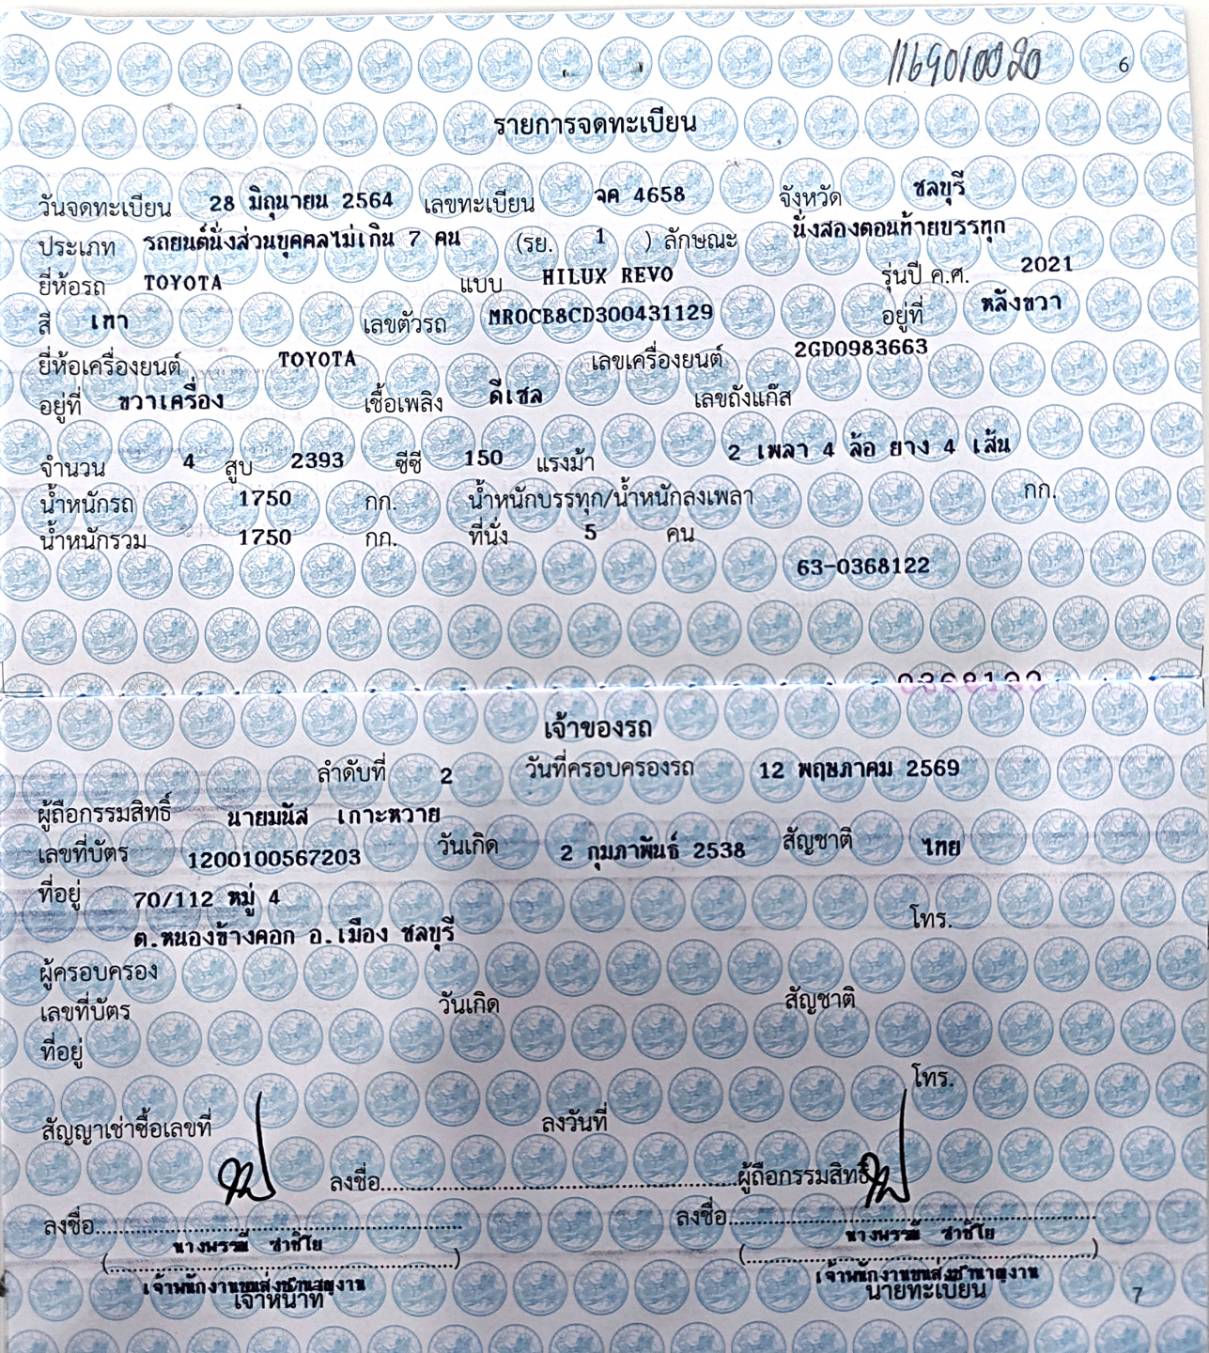 1169010020
6
รายการจดทะเบียน
วันจดทะเบียน 28 มิถุนายน 2564 เลขทะเบียน จค 4658 จังหวัด ชลบุรี
ประเภท รถยนต์นั่งส่วนบุคคลไม่เกิน 7 คน (รย. 1 ) ลักษณะ นั่งสองตอนท้ายบรรทุก
ยี่ห้อรถ TOYOTA แบบ HILUX REVO รุ่นปี ค.ศ. 2021
สี เทา เลขตัวรถ MR0CB8CD300431129 อยู่ที่ หลังขวา
ยี่ห้อเครื่องยนต์ TOYOTA เลขเครื่องยนต์ 2GD0983663
อยู่ที่ ขวาเครื่อง เชื้อเพลิง ดีเซล เลขถังแก๊ส
จำนวน 4 สูบ 2393 ซีซี 150 แรงม้า 2 เพลา 4 ล้อ ยาง 4 เส้น
น้ำหนักรถ 1750 กก. น้ำหนักบรรทุก/น้ำหนักลงเพลา กก.
น้ำหนักรวม 1750 กก. ที่นั่ง 5 คน
63-0368122
เจ้าของรถ
ลำดับที่ 2 วันที่ครอบครองรถ 12 พฤษภาคม 2569
ผู้ถือกรรมสิทธิ์ นายมนัส เกาะหวาย
เลขที่บัตร 1200100567203 วันเกิด 2 กุมภาพันธ์ 2538 สัญชาติ ไทย
ที่อยู่ 70/112 หมู่ 4
โทร.
ต.หนองข้างคอก อ.เมือง ชลบุรี
ผู้ครอบครอง
เลขที่บัตร วันเกิด สัญชาติ
ที่อยู่
โทร.
สัญญาเช่าซื้อเลขที่ ลงวันที่
ลงชื่อ ผู้ถือกรรมสิทธิ์
ลงชื่อ ลงชื่อ
นางพรรณี นางพรรณี
เจ้าพนักงานขนส่งชำนาญงาน เจ้าพนักงานขนส่งชำนาญงาน
เจ้าหน้าที่ นายทะเบียน
7